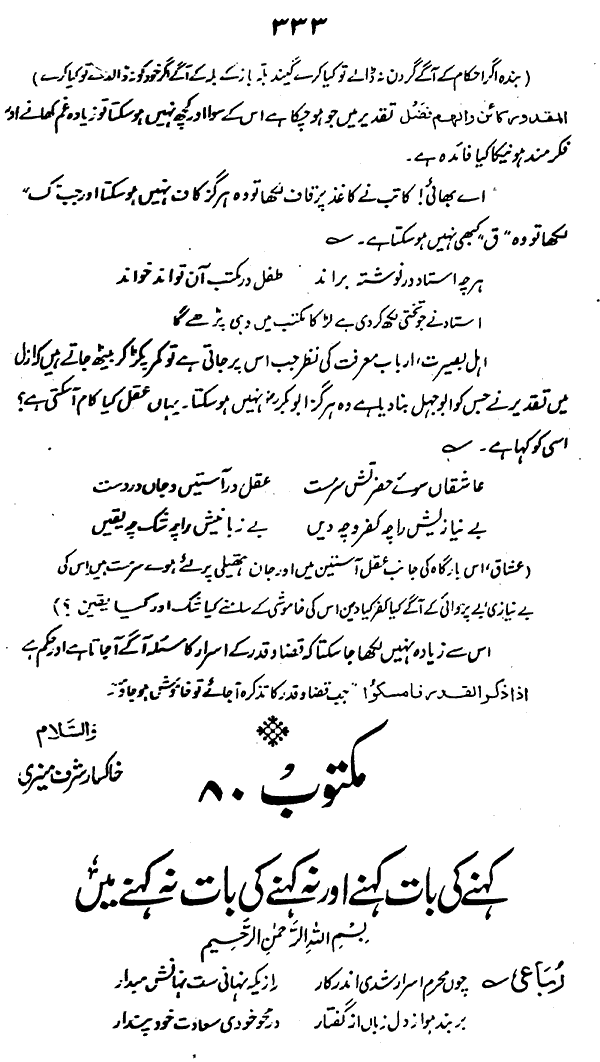 ۳۳۳
(بندہ اگر احکام کے آگے گردن نہ ڈالے تو کیا کرے گیند بلّہ باز کے بلہ کے آگے اگر خود کو نہ ڈال دے تو کیا کرے)
المقدور کائن والهم فضل تقدیر میں جو ہو چکا ہے اس کے سوا اور کچھ نہیں ہو سکتا تو زیادہ غم کھانے اور
فکر مند ہونیکا کیا فائدہ ہے۔
اے بھائی! کاتب نے کاغذ پر قاف لکھا تو وہ ہرگز کاف نہیں ہو سکتا اور جب "ک"
لکھا تو وہ "ق" کبھی نہیں ہو سکتا ہے۔
ہرچہ استاد در نوشتہ براند طفل در مکتب آن تواند خواند
استاد نے جو تختی لکھ کر دی ہے لڑکا مکتب میں وہی پڑھے گا
اہل بصیرت، ارباب معرفت کی نظر جب اس پر جاتی ہے تو کمر پکڑ کر بیٹھ جاتے ہیں کہ ازل
میں تقدیر نے جس کو ابوجہل بنا دیا ہے وہ ہرگز ابوبکرؓ نہیں ہو سکتا۔ یہاں عقل کیا کام آسکتی ہے؟
اسی کو کہا ہے۔
عاشقاں سوئے حضرتش سرمست عقل در آستیں و جاں در دست
بے نیازیش را چہ کفر و چہ دیں بے زبانیش را چہ شک چہ یقیں
(عشاق، اس بارگاہ کی جانب عقل آستین میں اور جان ہتھیلی پر لئے ہوے سرمست ہیں اس کی
بے نیازی بے پروائی کے آگے کیا کفر کیا دین اس کی خاموشی کے سامنے کیا شک اور کیا یقین ؟)
اس سے زیادہ نہیں لکھا جا سکتا کہ قضا و قدر کے اسرار کا مسئلہ آگے آجاتا ہے اور حکم ہے
اذا ذکر القدر فامسکوا "جب قضا و قدر کا تذکرہ آجائے تو خاموش ہو جاؤ"۔
والسّلام
خاکسار شرف منیری
مکتوب ۸۰
کہنے کی بات کہنے اور نہ کہنے کی بات نہ کہنے میں
بِسْمِ اللهِ الرَّحْمٰنِ الرَّحِيْمِ
رُباعی چوں محرم اسرار شدی اندر کار راز یکہ نہانی ست نہانش میدار
بر بند ہوا ز دل زباں از گفتار در محو خودی سعادت خود پندار